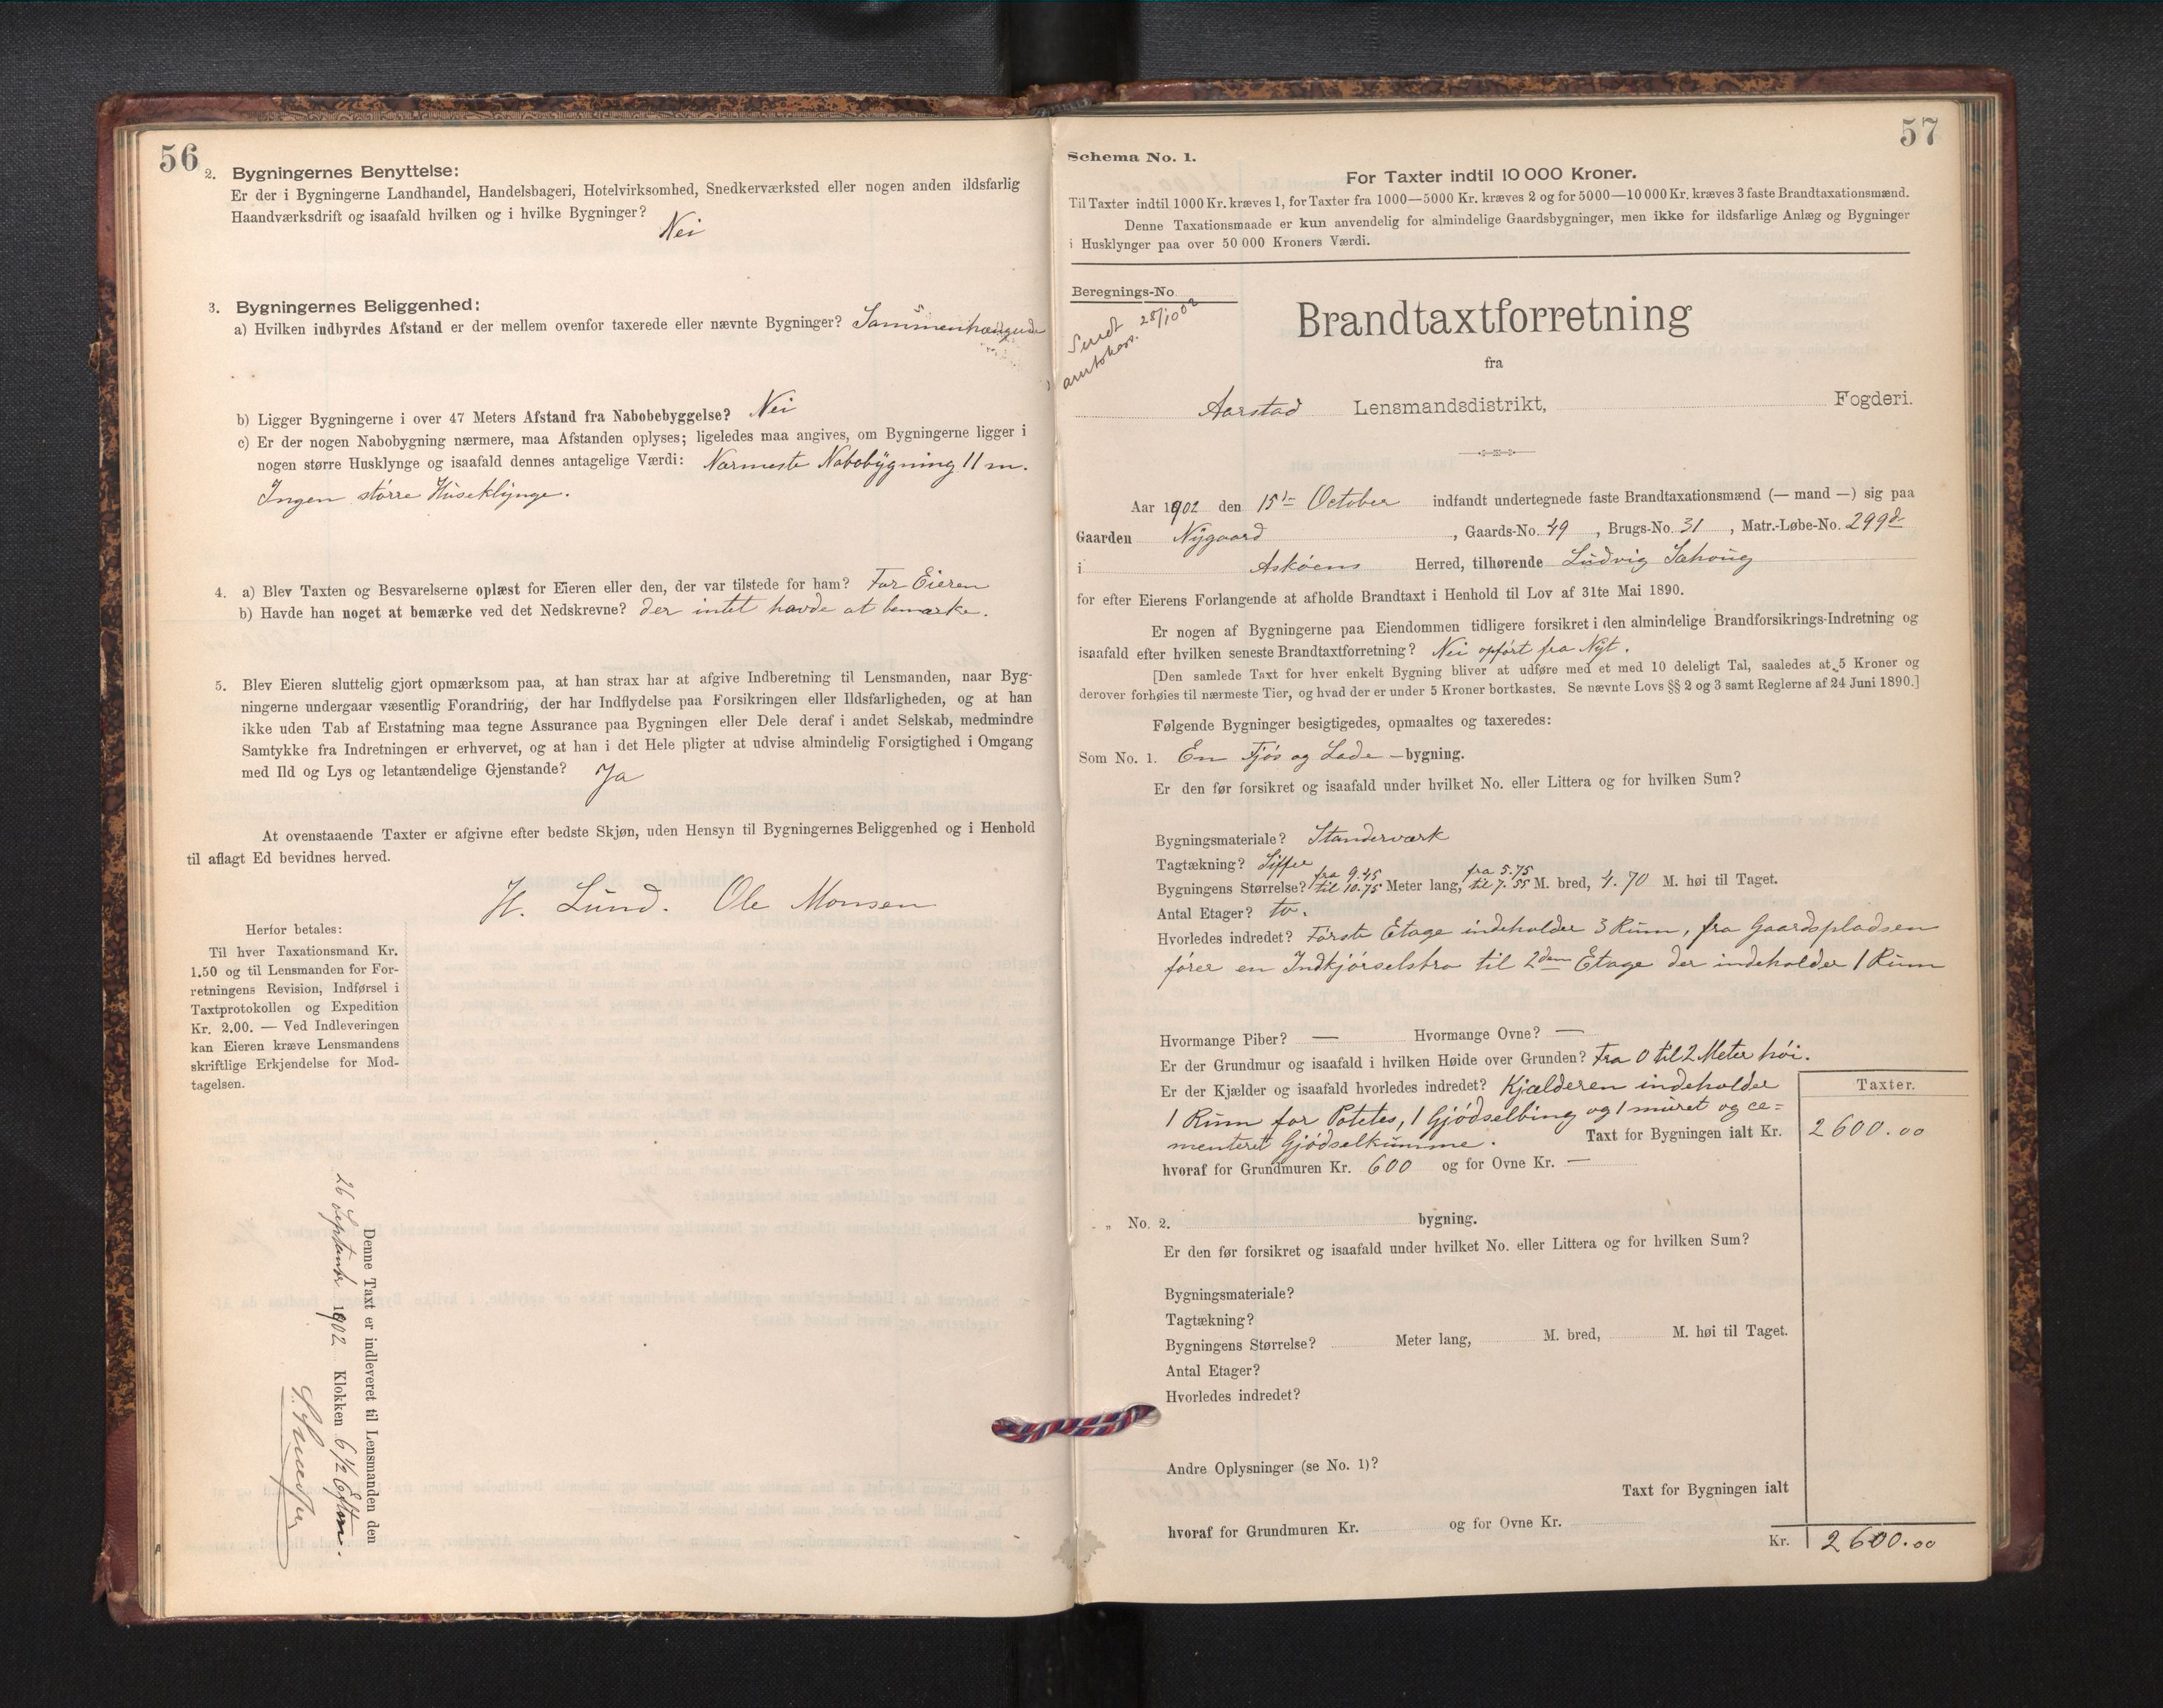 56
2. Bygningernes Benyttelse:
Er der i Bygningerne Landhandel, Handelsbageri, Hotelvirksomhed, Snedkerværksted eller nogen anden ildsfarlig
Haandværksdrift og isaafald hvilken og i hvilke Bygninger?
Nei
3. Bygningernes Beliggenhed:
a) Hvilken indbyrdes Afstand er der mellem ovenfor taxerede eller nævnte Bygninger? Sammenhængende
b) Ligger Bygningerne i over 47 Meters Afstand fra Nabobebyggelse? Nei
c) Er der nogen Nabobygning nærmere, maa Afstanden oplyses; ligeledes maa angives, om Bygningerne ligger i
nogen større Husklynge og isaafald dennes antagelige Værdi: Nærmeste Nabobygning 11 m.
Ingen större Huseklynge.
4. a) Blev Taxten og Besvarelserne oplæst for Eieren eller den, der var tilstede for ham? For Eieren
b) Havde han noget at bemærke ved det Nedskrevne? der intet havde at bemærke.
5. Blev Eieren sluttelig gjort opmærksom paa, at han strax har at afgive Indberetning til Lensmanden, naar Byg-
ningerne undergaar væsentlig Forandring, der har Indflydelse paa Forsikringen eller Ildsfarligheden, og at han
ikke uden Tab af Erstatning maa tegne Assurance paa Bygningen eller Dele deraf i andet Selskab, medmindre
Samtykke fra Indretningen er erhvervet, og at han i det Hele pligter at udvise almindelig Forsigtighed i Omgang
med Ild og Lys og letantændelige Gjenstande? Ja
At ovenstaaende Taxter er afgivne efter bedste Skjøn, uden Hensyn til Bygningernes Beliggenhed og i Henhold
til aflagt Ed bevidnes herved.
H. Lund. Ole Monsen
Herfor betales:
Til hver Taxationsmand Kr.
1.50 og til Lensmanden for For-
retningens Revision, Indførsel i
Taxtprotokollen og Expedition
Kr. 2.00. — Ved Indleveringen
kan Eieren kræve Lensmandens
skriftlige Erkjendelse for Mod-
tagelsen.
Denne Taxt er indleveret til Lensmanden den
26 September 1902 Klokken 6 1/2 Eftm.
57
Schema No. 1.
For Taxter indtil 10 000 Kroner.
Til Taxter indtil 1000 Kr. kræves 1, for Taxter fra 1000—5000 Kr. kræves 2 og for 5000—10 000 Kr. kræves 3 faste Brandtaxationsmænd.
Denne Taxationsmaade er kun anvendelig for almindelige Gaardsbygninger, men ikke for ildsfarlige Anlæg og Bygninger
i Husklynger paa over 50 000 Kroners Værdi.
Beregnings-No
Sendt 28/10 02
Brandtaxtforretning
fra
Aarstad Lensmandsdistrikt, Fogderi.
Aar 1902 den 15de October indfandt undertegnede faste Brandtaxationsmænd (— mand —) sig paa
Gaarden Nygaard, Gaards-No. 49, Brugs-No. 31, Matr.-Løbe-No. 299d
i Askøens Herred, tilhørende Ludvig
for efter Eierens Forlangende at afholde Brandtaxt i Henhold til Lov af 31te Mai 1890.
Er nogen af Bygningerne paa Eiendommen tidligere forsikret i den almindelige Brandforsikrings-Indretning og
isaafald efter hvilken seneste Brandtaxtforretning? Nei opfört fra Nyt.
[Den samlede Taxt for hver enkelt Bygning bliver at udføre med et med 10 deleligt Tal, saaledes at 5 Kroner og
derover forhøies til nærmeste Tier, og hvad der er under 5 Kroner bortkastes. Se nævnte Lovs §§ 2 og 3 samt Reglerne af 24 Juni 1890.]
Følgende Bygninger besigtigedes, opmaaltes og taxeredes:
Som No. 1. En Fjös og Lade —bygning.
Er den før forsikret og isaafald under hvilket No. eller Littera og for hvilken Sum?
Bygningsmateriale? Standerværk
Tagtækning? Siffer
Bygningens Størrelse? fra 9.45 til 10.75 Meter lang, fra 5.75 til 7.55 M. bred, 4.70 M. høi til Taget.
Antal Etager? to.
Hvorledes indredet? Förste Etage indeholder 3 Rum, fra Gaardspladsen
förer en Indkjörselsbro til 2den Etage der indeholder 1 Rum
Hvormange Piber? — Hvormange Ovne? —
Er der Grundmur og isaafald i hvilken Høide over Grunden? Fra 0 til 2 Meter höi.
Er der Kjælder og isaafald hvorledes indredet? Kjælderen indeholder
1 Rum for Potetes, 1 Gjödselbing og 1 muret og ce=
menteret Gjödselkumme.
Taxter.
Taxt for Bygningen ialt Kr. 2600.00
hvoraf for Grundmuren Kr. 600 og for Ovne Kr. —
„ No. 2. bygning.
Er den før forsikret og isaafald under hvilket No. eller Littera og for hvilken Sum?
Bygningsmateriale?
Tagtækning?
Bygningens Størrelse? Meter lang, M. bred, M. høi til Taget.
Antal Etager?
Hvorledes indredet?
Andre Oplysninger (se No. 1)?
Taxt for Bygningen ialt
hvoraf for Grundmuren Kr. og for Ovne Kr.
Kr. 2600.00